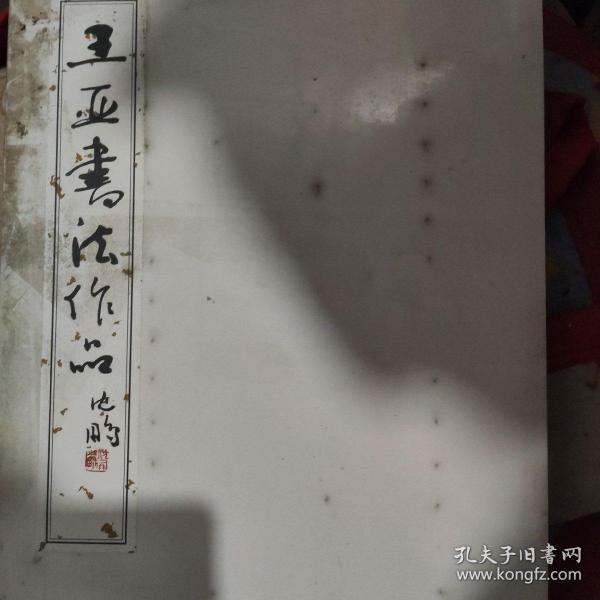 王亚书法作品
沈鹏
孔夫子旧书网
www.kongfz.com